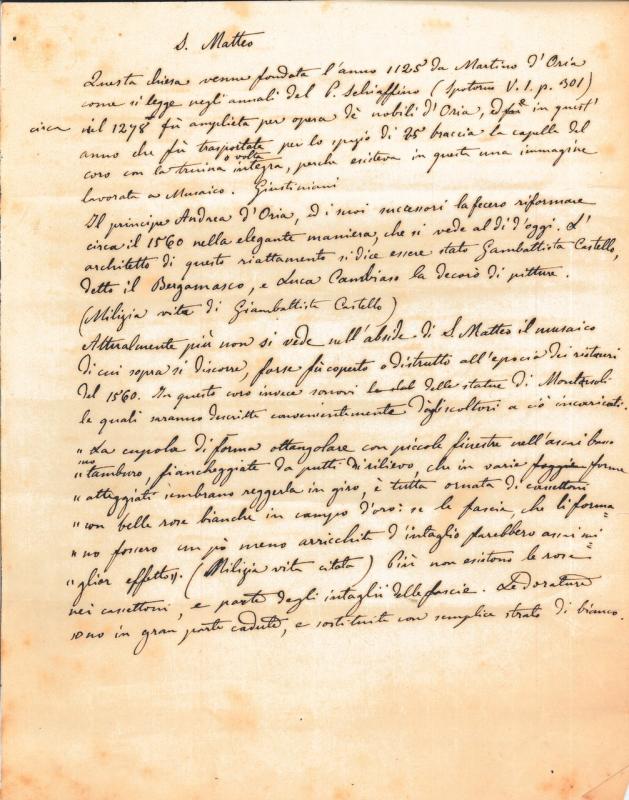 S. Matteo
Questa chiesa venne fondata l'anno 1125 da Martino d'Oria
come si legge negli annali del P. Schiaffino (Spotorno V. 1. p. 301)
circa nel 1278 fù ampliata per opera de nobili d'Oria, ed in quest'
anno che fù trasportata per lo spazio di 25 braccia la capella del
coro con la trivina o volta integra, perche esisteva in questa una immagine
lavorata a Musaico. Giustiniani
Il principe Andrea d'Oria, ed i suoi successori la fecero riformare
circa il 1560 nella elegante maniera, che si vede al di d'oggi. L'
architetto di questo riattamento si dice essere stato Gambattista Castello,
detto il Bergamasco, e Luca Cambiaso la decorò di pitture.
(Milizia vita di Giambattista Castello)
Attualmente più non si vede nell'abside di S Matteo il musaico
di cui sopra si discorre, forse fù coperto o distrutto all'epoca dei ristauri
del 1560. In questo coro invece sonovi delle statue di Montorsoli
le quali saranno descritte convenientemente dagli scultori a ciò incaricati.
" La cupola di forma ottangolare con piccole finestre nell'assai basso
" tamburo, fiancheggiate da putti di rilievo, che in varie forme
" atteggiati sembrano reggerla in giro, è tutta ornata di cassettoni
" con belle rose bianche in campo d'oro: se le fascie, che li forma=
" no fossero un pò meno arricchite d'intaglio farebbero assai mi=
" glior effetto". (Milizia vita citata) Più non esistono le rose
nei cassettoni, e parte degli intaglii delle fascie. Le dorature
sono in gran parte cadute, e sostituite con semplice strato di bianco.